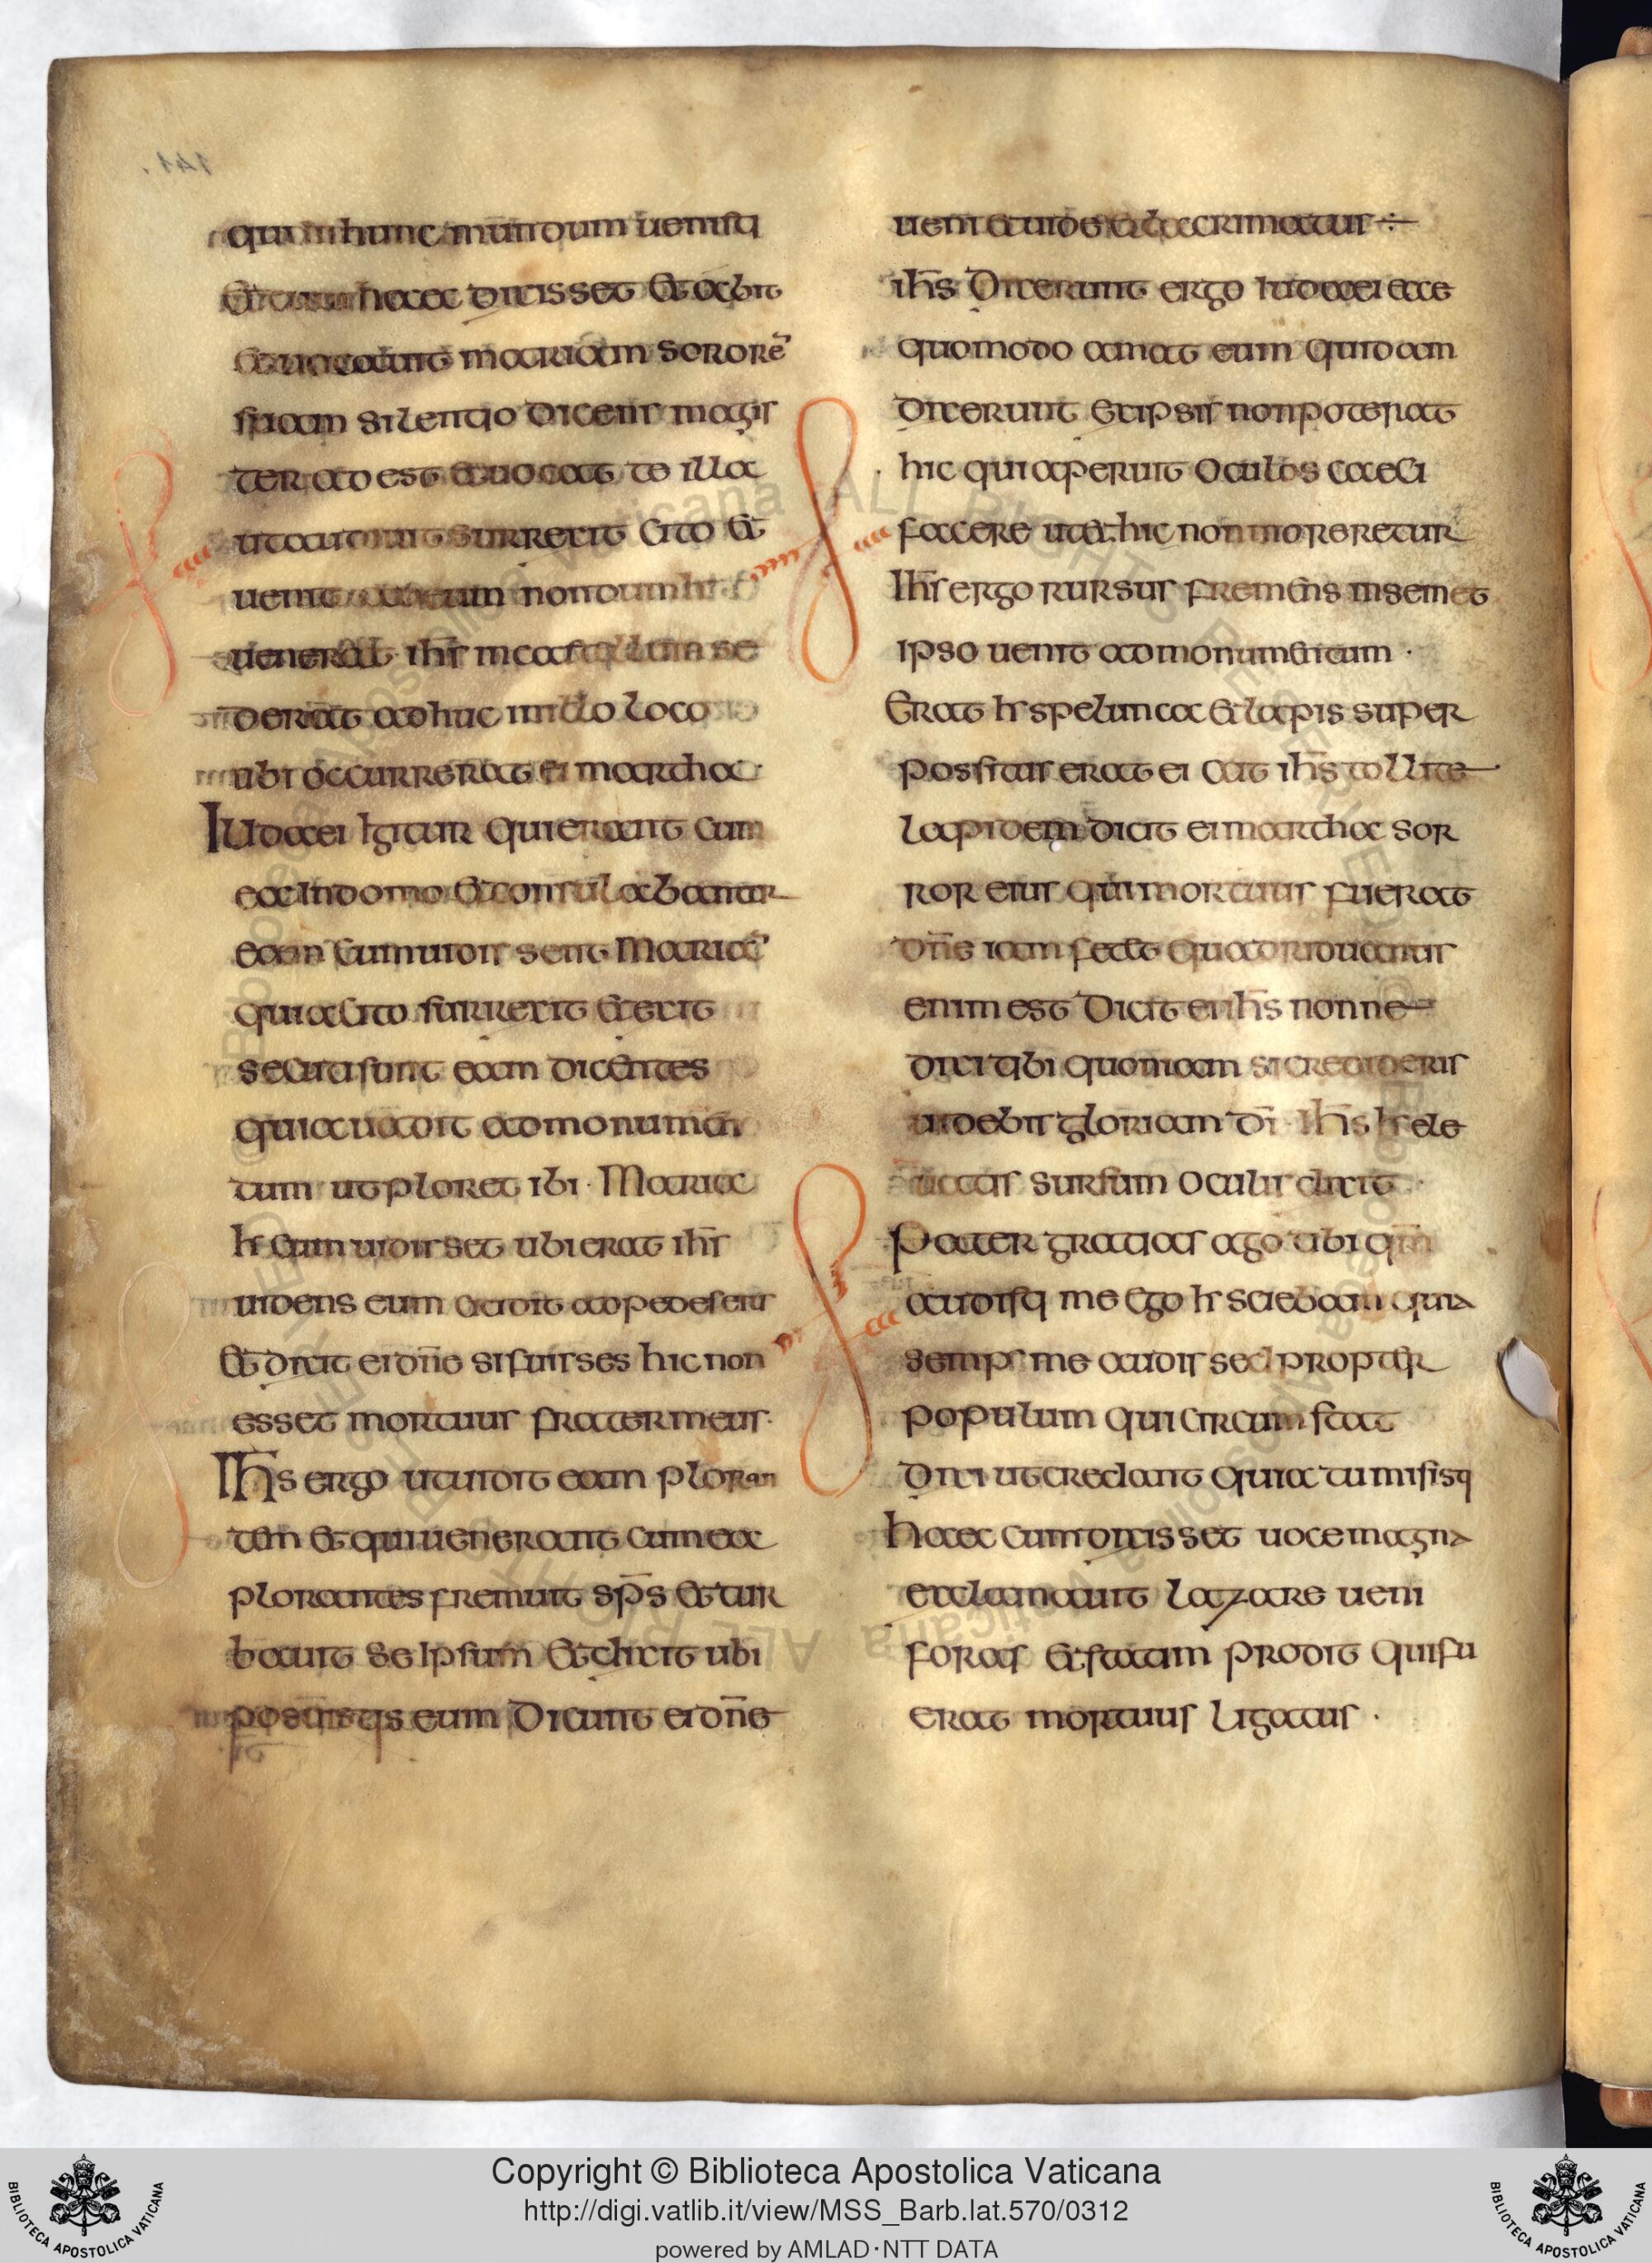 qui in hunc mundum uenisti
Et cum haec dixisset et abiit
et uocauit mariam sororē
suam silentio dicens magis
ter adest et uocat te illa
ut audiuit surrexit cito et
uenit ad eum nondum
uenerat ihs in castellum se
derat adhuc in illo loco
ubi occurrerat ei martha
Iudaei igitur qui erant cum
ea in domo et consulabantur
eam cum uidissent mariā
quia cito surrexit et exit
secuti sunt eam dicentes
quia uadit ad monumen
tum ut ploret ibi· Maria
h̄ cum uidisset ubi erat ih̄s
uidens eum cicidit ad pedes eius
Et dixit ei dn̄e si fuisses hic non
esset mortuus frater meus·
Ih̄s ergo ut uidit eam ploran
tem et qui uenerant cum ea
plorantes fremuit sp̄s et tur
bauit se ipsum et dixit ubi
possuistis eum Dicunt ei dn̄e
ueni et uide et lacrimatus ÷
ih̄s Dixerunt ergo iudaei ecce
quomodo amat eum quidam
dixerunt ex ipsis non poterat
hic qui aperuit oculos caeci
facere ut et hic non moreretur
Ih̄s ergo rursus fremens in semet
ipso uenit ad monumentum ·
Erat h̄ spelunca et lapis super
possitus erat ei ait ih̄s tollite
lapidem dicit ei martha sor
ror eius qui mortuus fuerat
dn̄e iam fetet quadriduanus
enim est Dicit ei ih̄s nonne
dixi tibi quoniam si credideris
uidebis gloriam dī Ih̄s h̄ ele
uatis sursum oculis dixit
Pater gratias ago tibi qm̄
audisti me ego h̄ sciebam quia
semp̄ me audis sed propter
populum qui circumstat
dixi ut credant quia tu misisti
Haec cum dixisset uoce magna
exclamauit lazare ueni
foras et statim prodit qui fu
erat mortuus ligatus ·
Copyright © Biblioteca Apostolica Vaticana
http://digi.vatlib.it/view/MSS_Barb.lat.570/0312
powered by AMLAD·NTT DATA
BIBLIOTECA APOSTOLICA VATICANA
BIBLIOTECA APOSTOLICA VATICANA